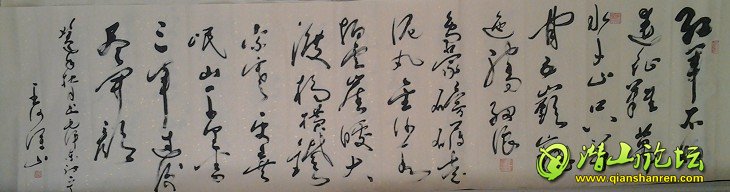 红军不
远征难万
水千山只等
闲五岭逶
迤腾细浪
乌蒙磅礴走
泥丸金沙水
拍云崖暖大
渡桥横铁
索寒更喜
岷山千里雪
三军过后
尽开颜
潜山论坛
www.qianshanren.com